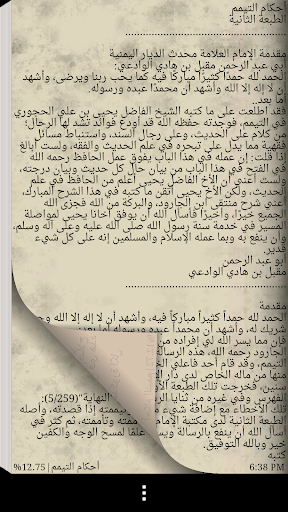 أحكام التيمم
الطبعة الثانية
مقدمة الإمام العلامة محدث الديار اليمنية
أبي عبد الرحمن مقبل بن هادي الوادعي:
الحمد لله حمدًا كثيرًا مباركًا فيه كما يحب ربنا ويرضى، وأشهد
أن لا إله إلا الله وأشهد أن محمدًا عبده ورسوله.
أما بعد..
فقد اطلعت على ما كتبه الشيخ الفاضل يحيى بن علي الحجوري
في التيمم، فوجدته حفظه الله قد أودع فوائد تشد لها الرحال
من كلام على الحديث، وعلى رجال السند، واستنباط مسائل
فقهية مما يدل على تبحره في علم الحديث والفقه، ولست أبالغ
إذا قلت: إن عمله في هذا الباب يفوق عمل الحافظ رحمه الله
في الفتح في هذا الباب من بيان حال كل حديث وبيان درجته،
ولست أعني أن الأخ الفاضل يحيى أعلم من الحافظ في علم
الحديث، ولكن الأخ يحيى أتقن ما كتبه في هذا الشرح المبارك،
أعني شرح منتقى ابن الجارود، والبركة من الله فجزى الله
الجميع خيرًا، وأخيرًا فأسأل الله أن يوفق أخانا يحيى لمواصلة
المسير في خدمة سنة رسول الله صلى الله عليه وآله وسلم،
وأن ينفع به وبما عمله الإسلام والمسلمين إنه على كل شيء
قدير.
أبو عبد الرحمن
مقبل بن هادي الوادعي
مقدمة
الحمد لله حمداً كثيراً مباركاً فيه، وأشهد أن لا إله إلا الله وحده
شريك له، وأشهد أن محمداً عبده ورسوله أما بعد:
فإن مما يسر الله لي إفراده من
الجارود رحمه الله، هذه الرسالة
التيمم، وقد قام أحد فاعلي الخير
منها من ماله الخاص لدى دار
سنين، فخرجت تلك الطبعة الأ
الفهرس وفي غيره من ثنايا الر
النهاية"(5/259):
تلك الأخطاء مع إضافة شيء م
ويممته إذا قصدته، وأصله
الطبعة الثانية لدى مكتبة الإمام
وتأممته، ثم كثر في
أسأل الله أن ينفع بالرسالة ويس
علمًا لمسح الوجه والكفين
خير وبالله التوفيق.
كتبه
%12.75 |أحكام التيمم
6:38 PM